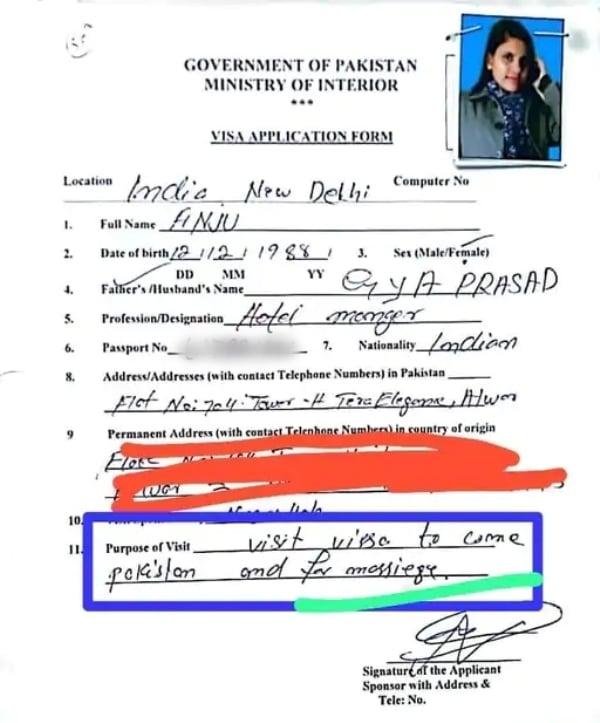 GOVERNMENT OF PAKISTAN
MINISTRY OF INTERIOR
***
VISA APPLICATION FORM
Location India New Delhi Computer No
1. Full Name ANJU
2. Date of birth 12/12/1988/ 3. Sex (Male/Female)
DD MM YY
4. Father's /Husband's Name GYA PRASAD
5. Profession/Designation Hotel manger
6. Passport No 7. Nationality Indian
8. Address/Addresses (with contact Telephone Numbers) in Pakistan
Flat No: 704. Tower-H Tera Elegance, Alwar
9 Permanent Address (with contact Telephone Numbers) in country of origin
10.
11. Purpose of Visit visit vissa to come
pakistan and for massiege.
Signature of the Applicant
Sponsor with Address &
Tele: No.